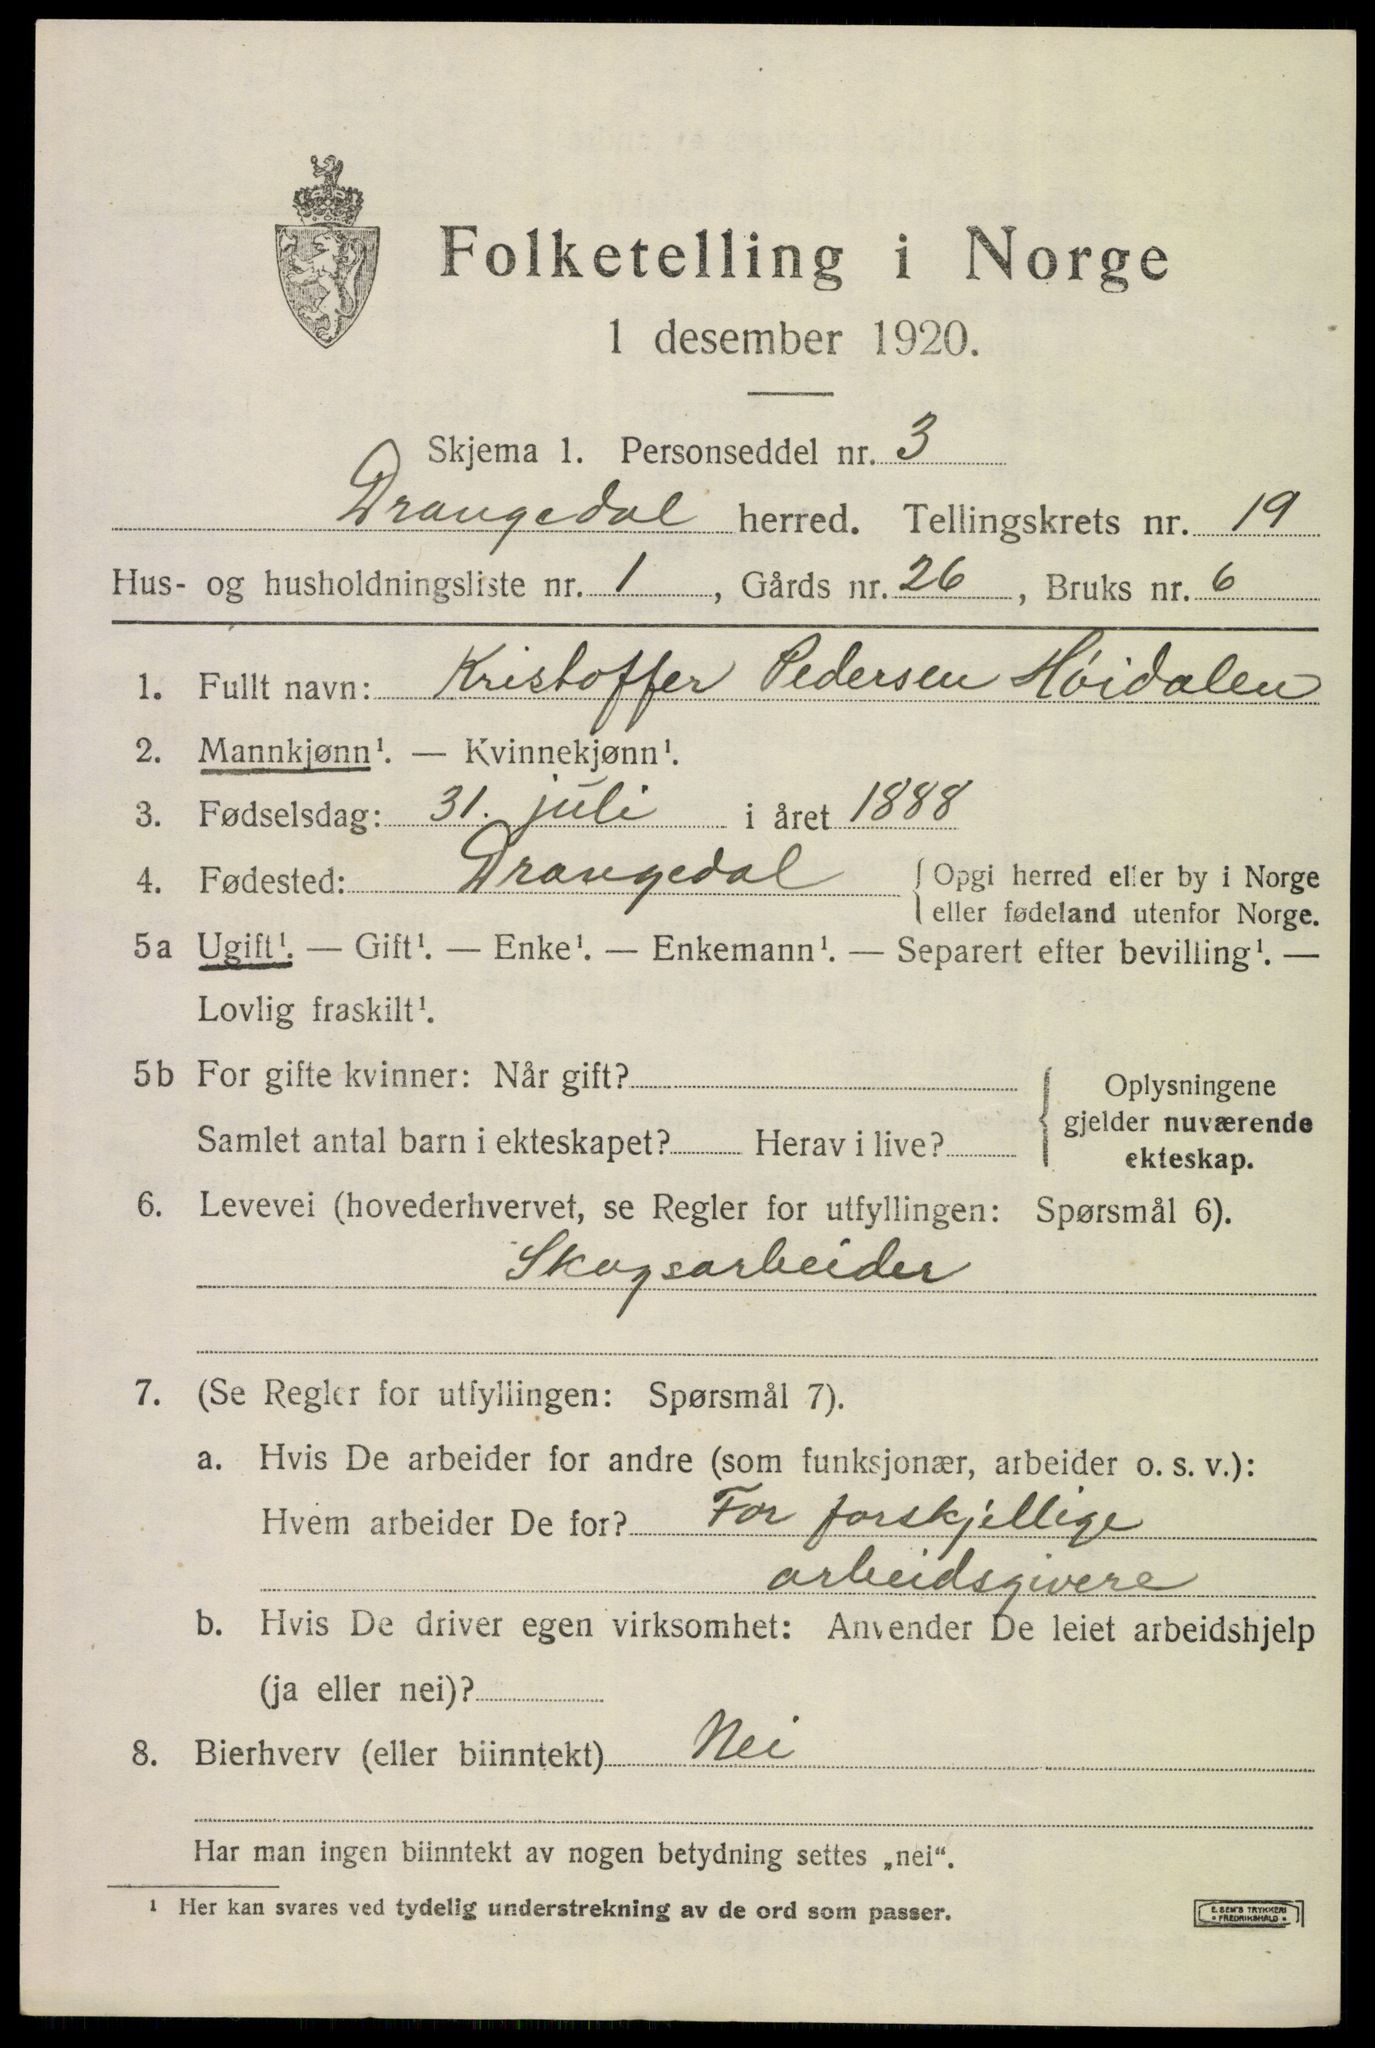 Folketelling i Norge
1 desember 1920.
Skjema 1. Personseddel nr. 3
Drangedal herred. Tellingskrets nr. 19
Hus- og husholdningsliste nr. 1, Gårds nr. 26, Bruks nr. 6
1. Fullt navn: Kristoffer Pedersen Høidalen
2. Mannkjønn¹. — Kvinnekjønn¹.
3. Fødselsdag: 31. juli i året 1888
4. Fødested: Drangedal { Opgi herred eller by i Norge
eller fødeland utenfor Norge.
5a Ugift¹. — Gift¹. — Enke¹. — Enkemann¹. — Separert efter bevilling¹. —
Lovlig fraskilt¹.
5b For gifte kvinner: Når gift?
Samlet antal barn i ekteskapet? Herav i live?
{ Oplysningene
gjelder nuværende
ekteskap.
6. Levevei (hovederhvervet, se Regler for utfyllingen: Spørsmål 6).
Skogsarbeider
7. (Se Regler for utfyllingen: Spørsmål 7).
a. Hvis De arbeider for andre (som funksjonær, arbeider o. s. v.):
Hvem arbeider De for? For forskjellige
arbeidsgivere
b. Hvis De driver egen virksomhet: Anvender De leiet arbeidshjelp
(ja eller nei)?
8. Bierhverv (eller biinntekt) Nei
Har man ingen biinntekt av nogen betydning settes „nei“.
¹ Her kan svares ved tydelig understrekning av de ord som passer.
E. SEM'S TRYKKERI
• FREDRIKSHALD •